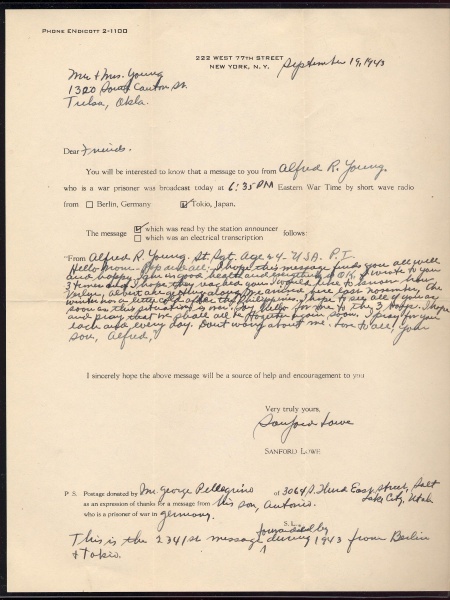 PHONE ENDICOTT 2-1100
222 WEST 77TH STREET
NEW YORK, N. Y.
September 19, 1943
Mr + Mrs. Young
1320 South Canton St.
Tulsa, Okla.
Dear Friends.
You will be interested to know that a message to you from Alfred R. Young.
who is a war prisoner was broadcast today at 6:35 PM Eastern War Time by short wave radio
from Berlin, Germany Tokio, Japan.
The message which was read by the station announcer
which was an electrical transcription follows:
"From Alfred R. Young. St. Sgt. Age 24. U.S.A. P.I.
Hello Mom - Pop and all. I hope this message finds you all well
and happy. I am in good health and everything is O.K. I wrote to you
3 times and I hope they reached you. I would like to know how
are all getting along. I arrived here last November. The
winter was a little cold after the Philippines. I hope to see all of you very
soon as this situation is over. Say Hello for me to the 3 boys. I hope
and pray that we shall all be together again soon. I pray for you
each and every day. Don't worry about me. Love to all, your
son, Alfred."
I sincerely hope the above message will be a source of help and encouragement to you
Very truly yours,
Sanford Lowe
SANFORD LOWE
P S. Postage donated by Mr. George Pellegrino of 3064 S. Third East Street, Salt
Lake City, Utah
as an expression of thanks for a message from his son, Antonio.
who is a prisoner of war in Germany.
S. L.
forwarded by
This is the 2341st message during 1943 from Berlin
+ Tokio.